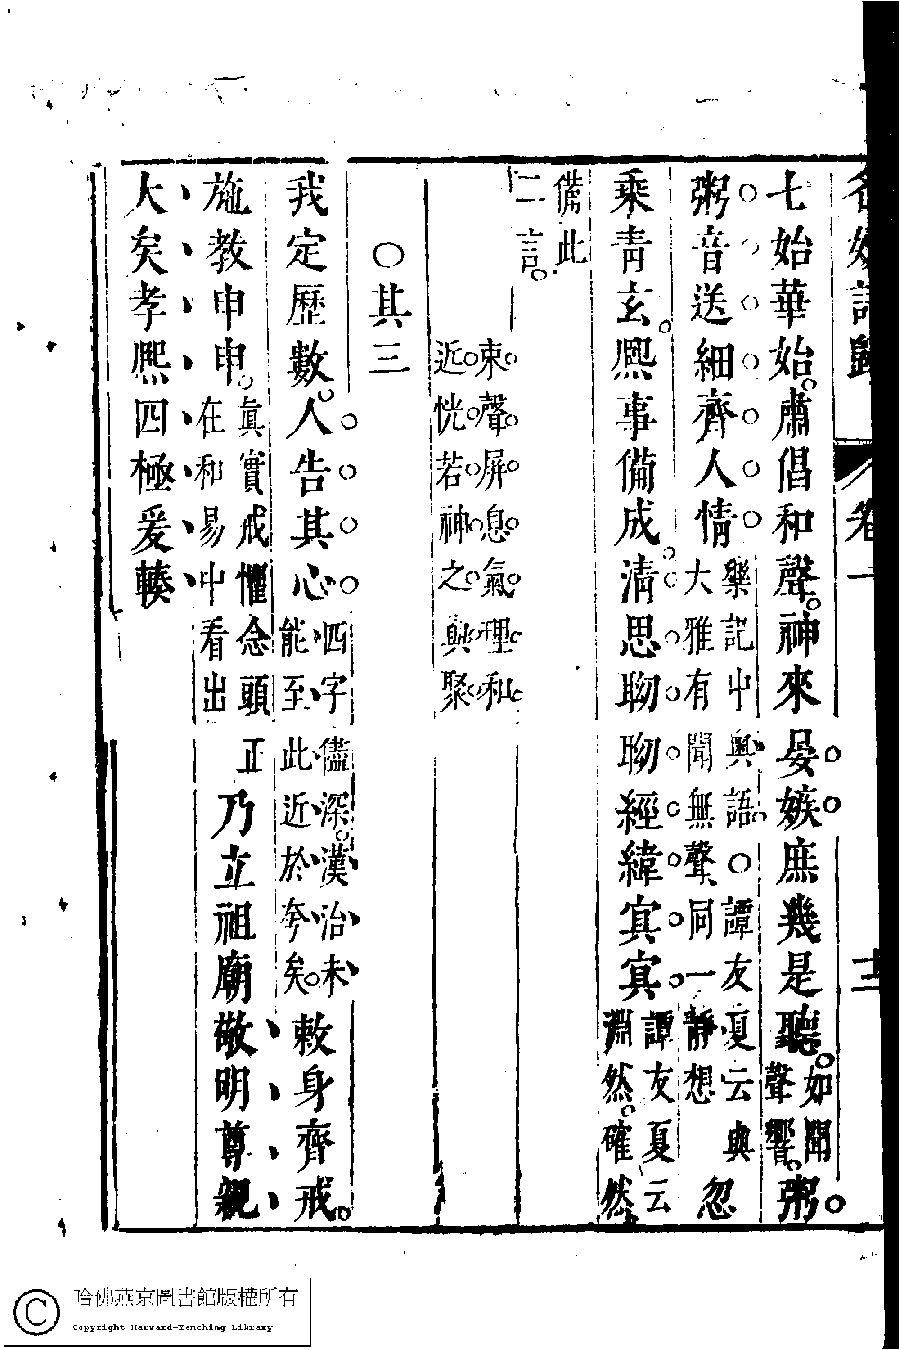 名媛詩歸 卷一 十二
七始華始。肅倡和聲。神來晏娭庶幾是聽。如聞聲響。粥
粥音送細齊人情樂記中興語。○譚友夏云典大雅有聞無聲同一靜想忽
乘青玄。熙事備成。清思聈聈經緯㝠㝠譚友夏云淵然。確然
備此二言。
束聲屏息氣理和
近恍若神之與聚
○其三
我定歷數。人告其心四字儘深。漢治未能至此近於夸矣。敕身齊戒。
施教申申。眞實戒懼念頭正在和易中看出乃立祖廟敬明尊親
大矣孝熙四極爰轃
哈佛燕京圖書館版權所有
Copyright Harvard-Yenching Library